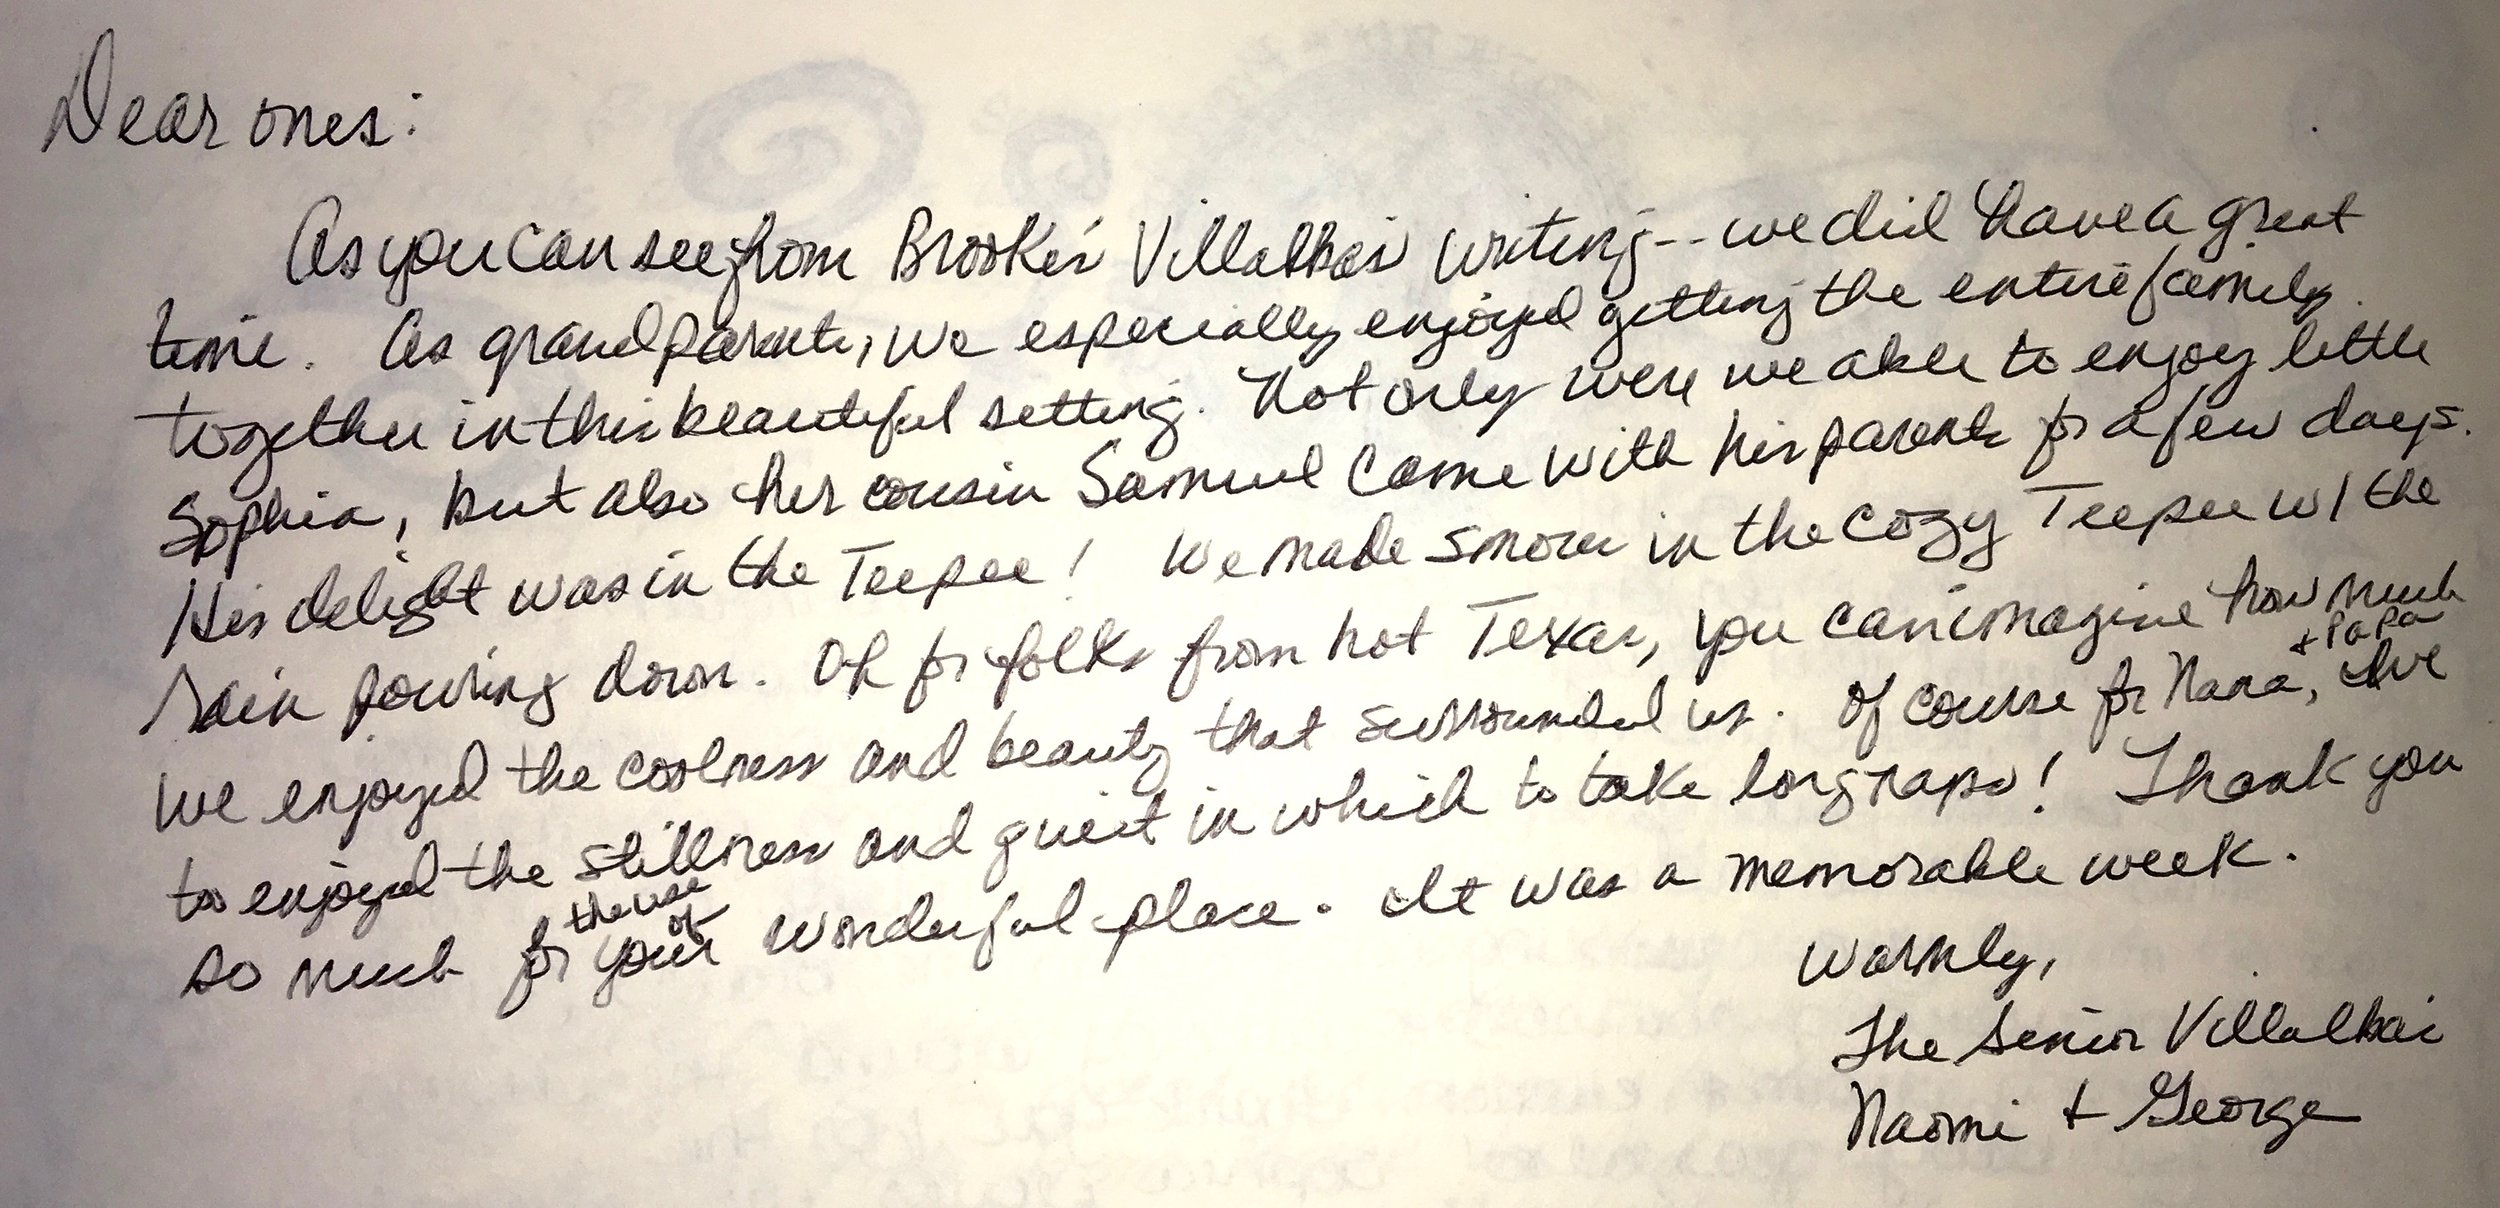 Dear ones:
As you can see from Brooke's Villalba's writing -- we did have a great
time. As grandparents, we especially enjoyed getting the entire family
together in this beautiful setting. Not only were we able to enjoy little
Sophia, but also her cousin Samuel came with his parents for a few days.
His delight was in the Teepee! We made smores in the cozy Teepee w/ the
rain pouring down. Oh for folks from hot Texas, you can imagine how much
we enjoyed the coolness and beauty that surrounded us. Of course for Nana, + PaPa we
too enjoyed the stillness and quiet in which to take long naps! Thank you
so much for the use of your wonderful place. It was a memorable week.
Warmly,
The Senior Villalbas
Naomi + George